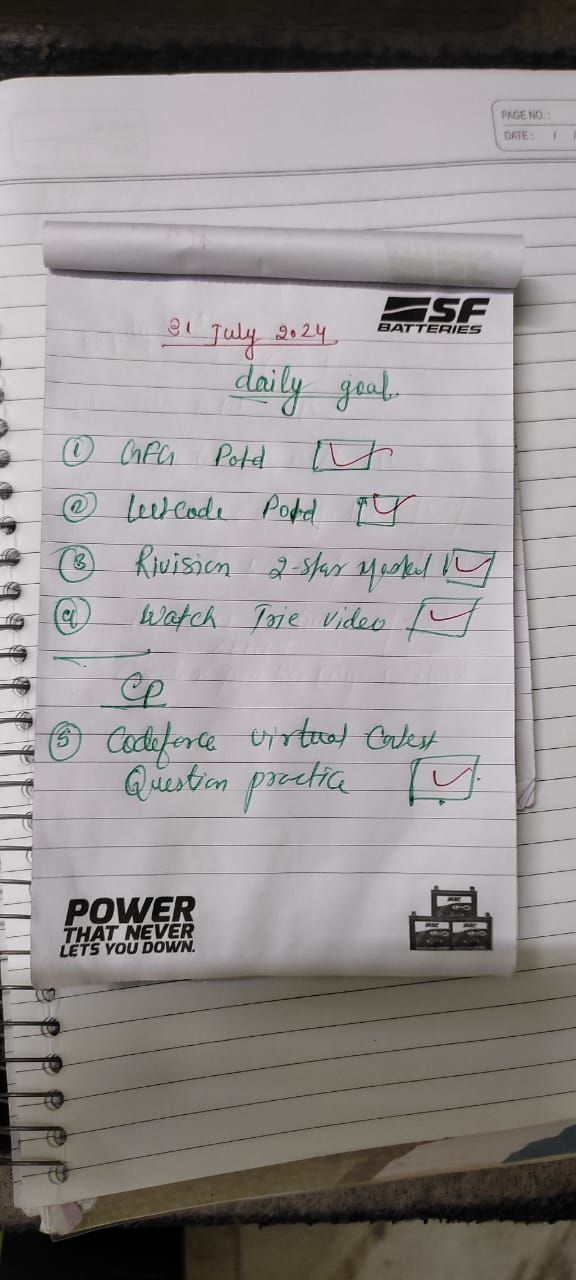 PAGE NO.:
DATE: / /
SF
BATTERIES
31 July 2024
daily goal.
① GFG Potd
② Leetcode Potd
③ Rivision 2-star Marked
④ Watch Trie video
CP
⑤ Codeforce virtual Contest
Question practice
POWER
THAT NEVER
LETS YOU DOWN.